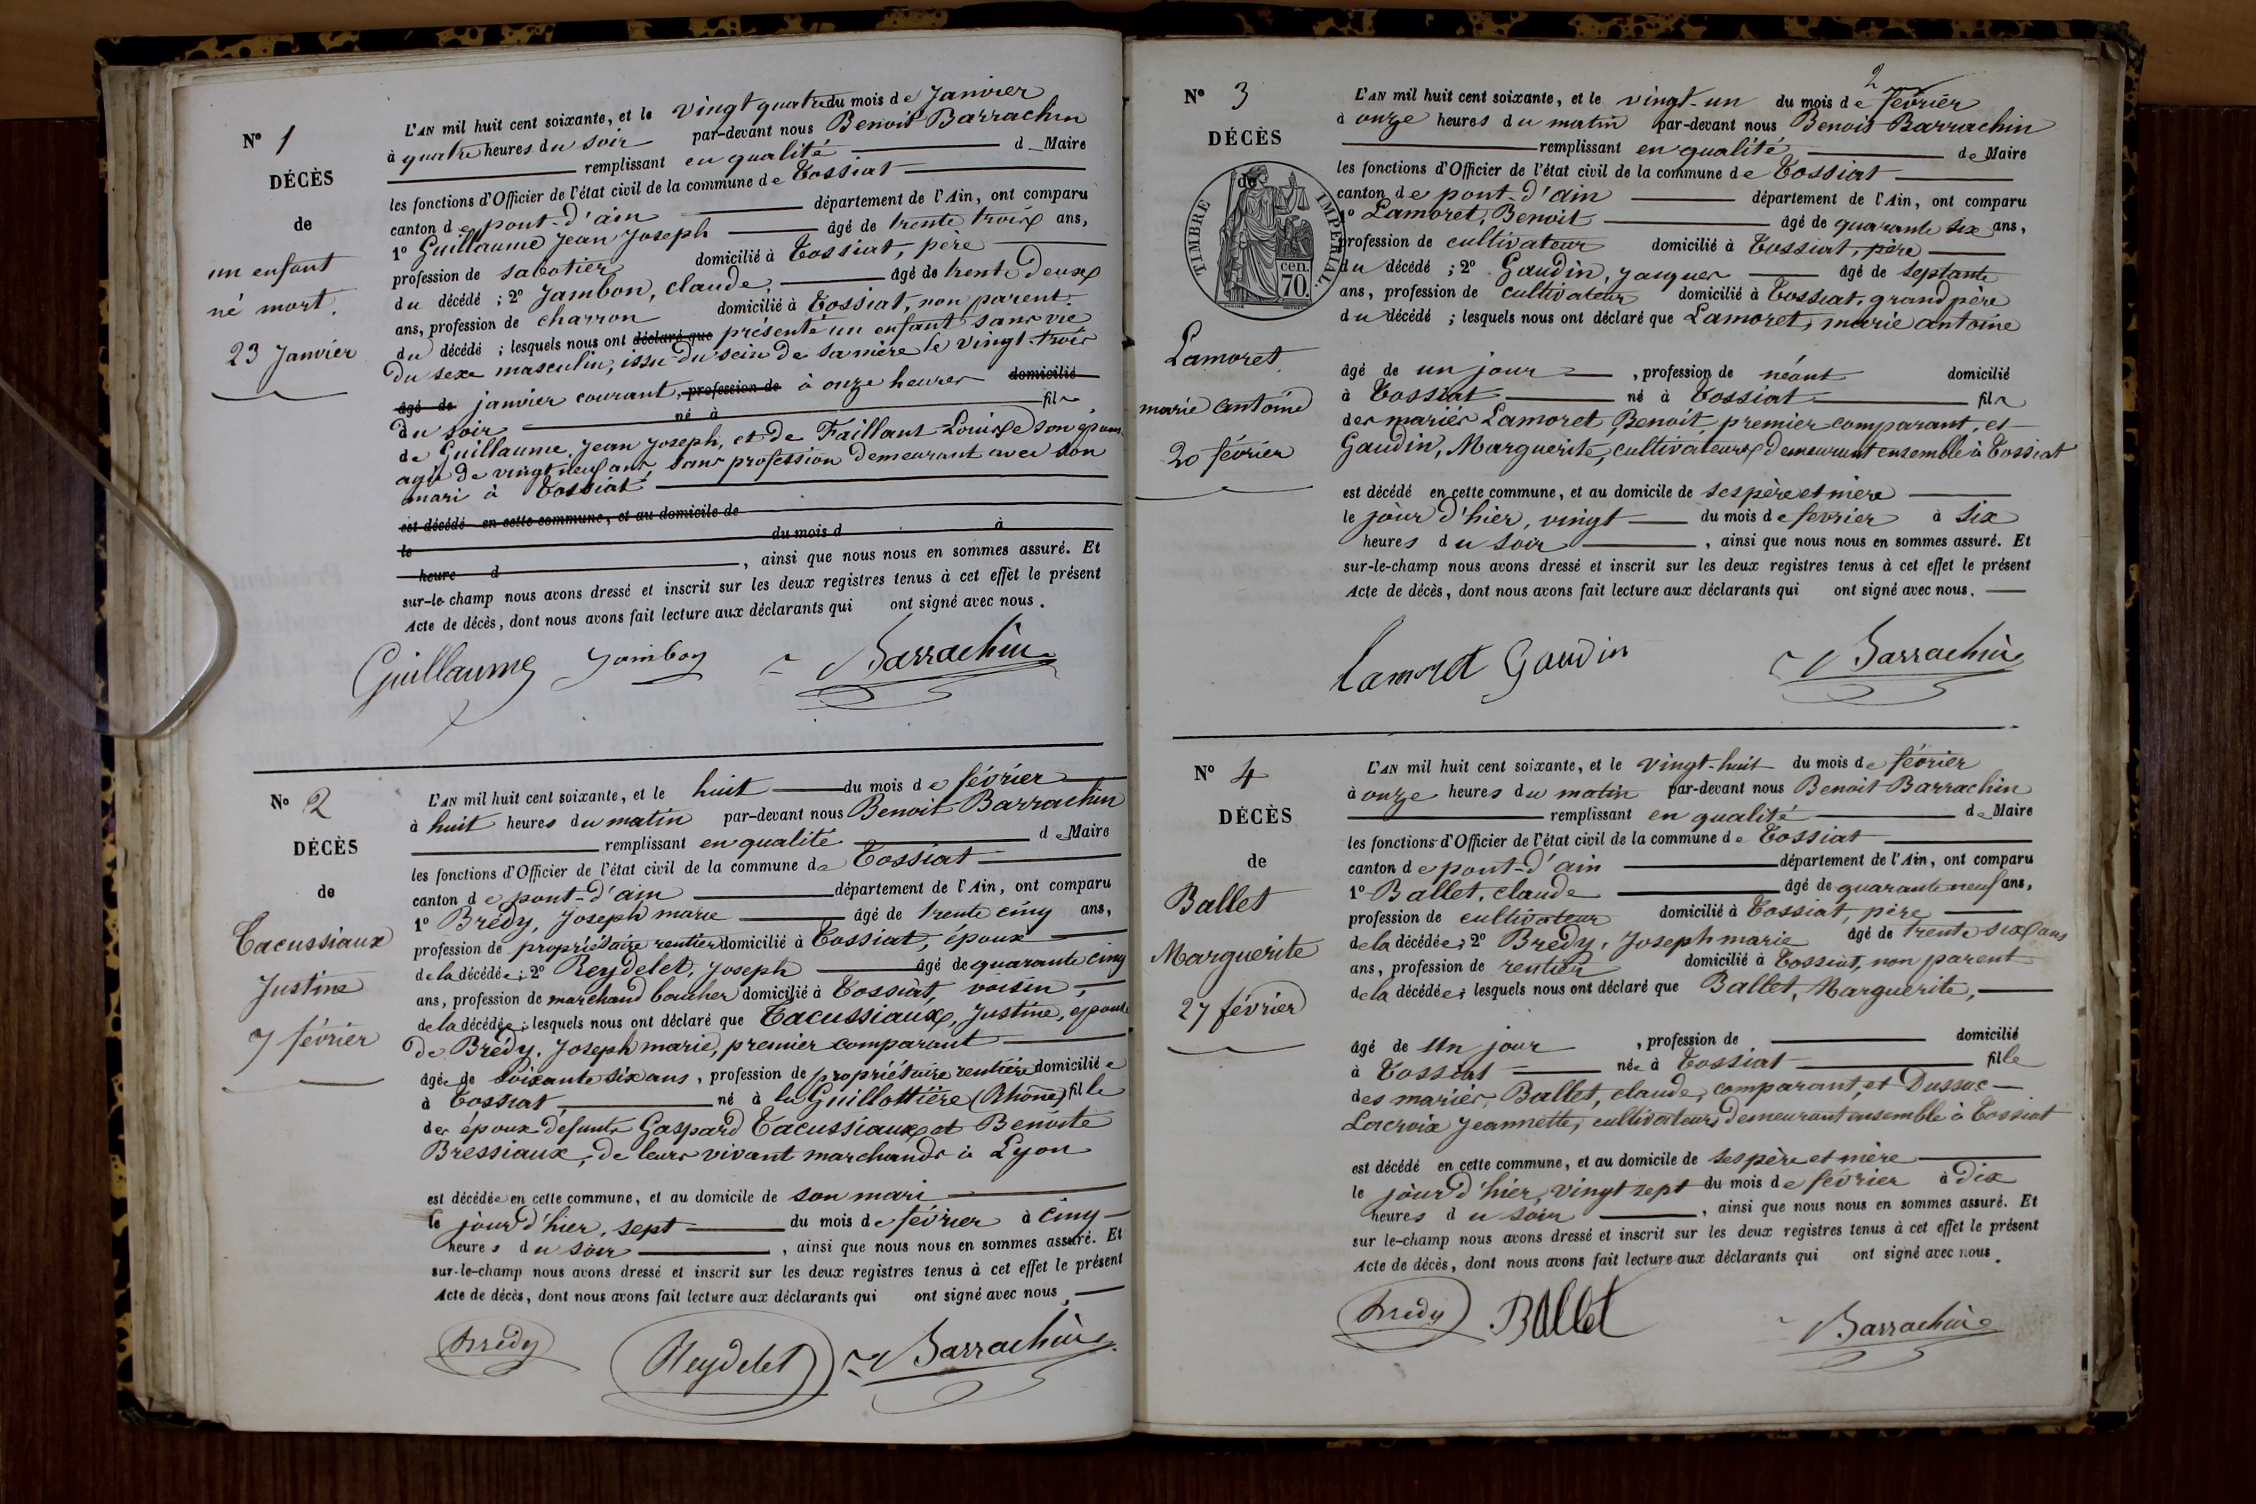 N° 1
DÉCÈS
de
un enfant
né mort.
23 Janvier
L'AN mil huit cent soixante, et le vingt quatre du mois de Janvier
à quatre heures du soir par-devant nous Benoit Barrachin
remplissant en qualité d Maire
les fonctions d'Officier de l'état civil de la commune de Tossiat
canton de pont-d'ain département de l'Ain, ont comparu
1° Guillaume Jean Joseph âgé de trente trois ans,
profession de sabotier domicilié à Tossiat, père
du décédé ; 2° Jambon, claude, âgé de trente deux
ans, profession de charron domicilié à Tossiat, non parent.
du décédé ; lesquels nous ont déclaré que présenté un enfant sans vie
du sexe masculin, issu du sein de sa mère le vingt-trois
âgé de janvier courant, profession de à onze heures domicilié
du soir né à fils
de Guillaume, Jean Joseph, et de Faillant Louise son épouse
agée de vingt neuf ans, sans profession demeurant avec son
mari à Tossiat
est décédé en cette commune, et au domicile de
le du mois d à
heure d , ainsi que nous nous en sommes assuré. Et
sur-le-champ nous avons dressé et inscrit sur les deux registres tenus à cet effet le présent
Acte de décès, dont nous avons fait lecture aux déclarants qui ont signé avec nous.
Guillaume Jambon Barrachin
N° 2
DÉCÈS
de
Tacussiaux
Justine
7 février
L'AN mil huit cent soixante, et le huit du mois de février
à huit heures du matin par-devant nous Benoit Barrachin
remplissant en qualité de Maire
les fonctions d'Officier de l'état civil de la commune de Tossiat
canton de pont-d'ain département de l'Ain, ont comparu
1° Brédy, Joseph marie âgé de trente cinq ans,
profession de propriétaire rentier domicilié à Tossiat, époux
de la décédée ; 2° Reydelet, Joseph âgé de quarante cinq
ans, profession de marchand boucher domicilié à Tossiat, voisin,
de la décédée ; lesquels nous ont déclaré que Tacussiaux, Justine, épouse
de Brédy, Joseph marie, premier comparant
âgée de soixante six ans, profession de propriétaire rentière domiciliée
à Tossiat, né à la Guillottière (Rhône) fille
des époux défunts Gaspard Tacussiaux et Benoite
Bressiaux, de leurs vivant marchands à Lyon
est décédée en cette commune, et au domicile de son mari
le jour d'hier, sept du mois de février à cinq
heures du soir , ainsi que nous nous en sommes assuré. Et
sur-le-champ nous avons dressé et inscrit sur les deux registres tenus à cet effet le présent
Acte de décès, dont nous avons fait lecture aux déclarants qui ont signé avec nous,
Brédy Reydelet Barrachin
N° 3
DÉCÈS
de
TIMBRE IMPÉRIAL.
cen.
70.
Lamoret
marie antoine
20 février
2
L'AN mil huit cent soixante, et le vingt-un du mois de février
à onze heures du matin par-devant nous Benoit Barrachin
remplissant en qualité de Maire
les fonctions d'Officier de l'état civil de la commune de Tossiat
canton de pont-d'ain département de l'Ain, ont comparu
1° Lamoret, Benoit âgé de quarante six ans,
profession de cultivateur domicilié à Tossiat, père
du décédé ; 2° Gaudin, Jacques âgé de septante
ans, profession de cultivateur domicilié à Tossiat, grand père
du décédé ; lesquels nous ont déclaré que Lamoret, marie antoine
âgé de un jour , profession de néant domicilié
à Tossiat né à Tossiat fils
des mariés Lamoret Benoit, premier comparant, et
Gaudin, Marguerite, cultivateurs demeurant ensemble à Tossiat
est décédé en cette commune, et au domicile de ses père et mère
le jour d'hier, vingt du mois de fevrier à six
heures du soir , ainsi que nous nous en sommes assuré. Et
sur-le-champ nous avons dressé et inscrit sur les deux registres tenus à cet effet le présent
Acte de décès, dont nous avons fait lecture aux déclarants qui ont signé avec nous.
Lamoret Gaudin Barrachin
N° 4
DÉCÈS
de
Ballet
Marguerite
27 février
L'AN mil huit cent soixante, et le vingt-huit du mois de février
à onze heures du matin par-devant nous Benoit Barrachin
remplissant en qualité de Maire
les fonctions d'Officier de l'état civil de la commune de Tossiat
canton de pont-d'ain département de l'Ain, ont comparu
1° Ballet, claude âgé de quarante neuf ans,
profession de cultivateur domicilié à Tossiat, père
de la décédée ; 2° Brédy, Joseph marie âgé de trente six ans
ans, profession de rentier domicilié à Tossiat, non parent
de la décédée ; lesquels nous ont déclaré que Ballet, Marguerite,
âgé de Un jour , profession de domicilié
à Tossiat née à Tossiat fille
des mariés, Ballet, claude, comparant, et Dussuc
Lacroix Jeannette, cultivateurs demeurant ensemble à Tossiat
est décédé en cette commune, et au domicile de ses père et mère
le jour d'hier, vingt sept du mois de février à Dix
heures du soir , ainsi que nous nous en sommes assuré. Et
sur le-champ nous avons dressé et inscrit sur les deux registres tenus à cet effet le présent
Acte de décès, dont nous avons fait lecture aux déclarants qui ont signé avec nous.
Brédy Ballet Barrachin